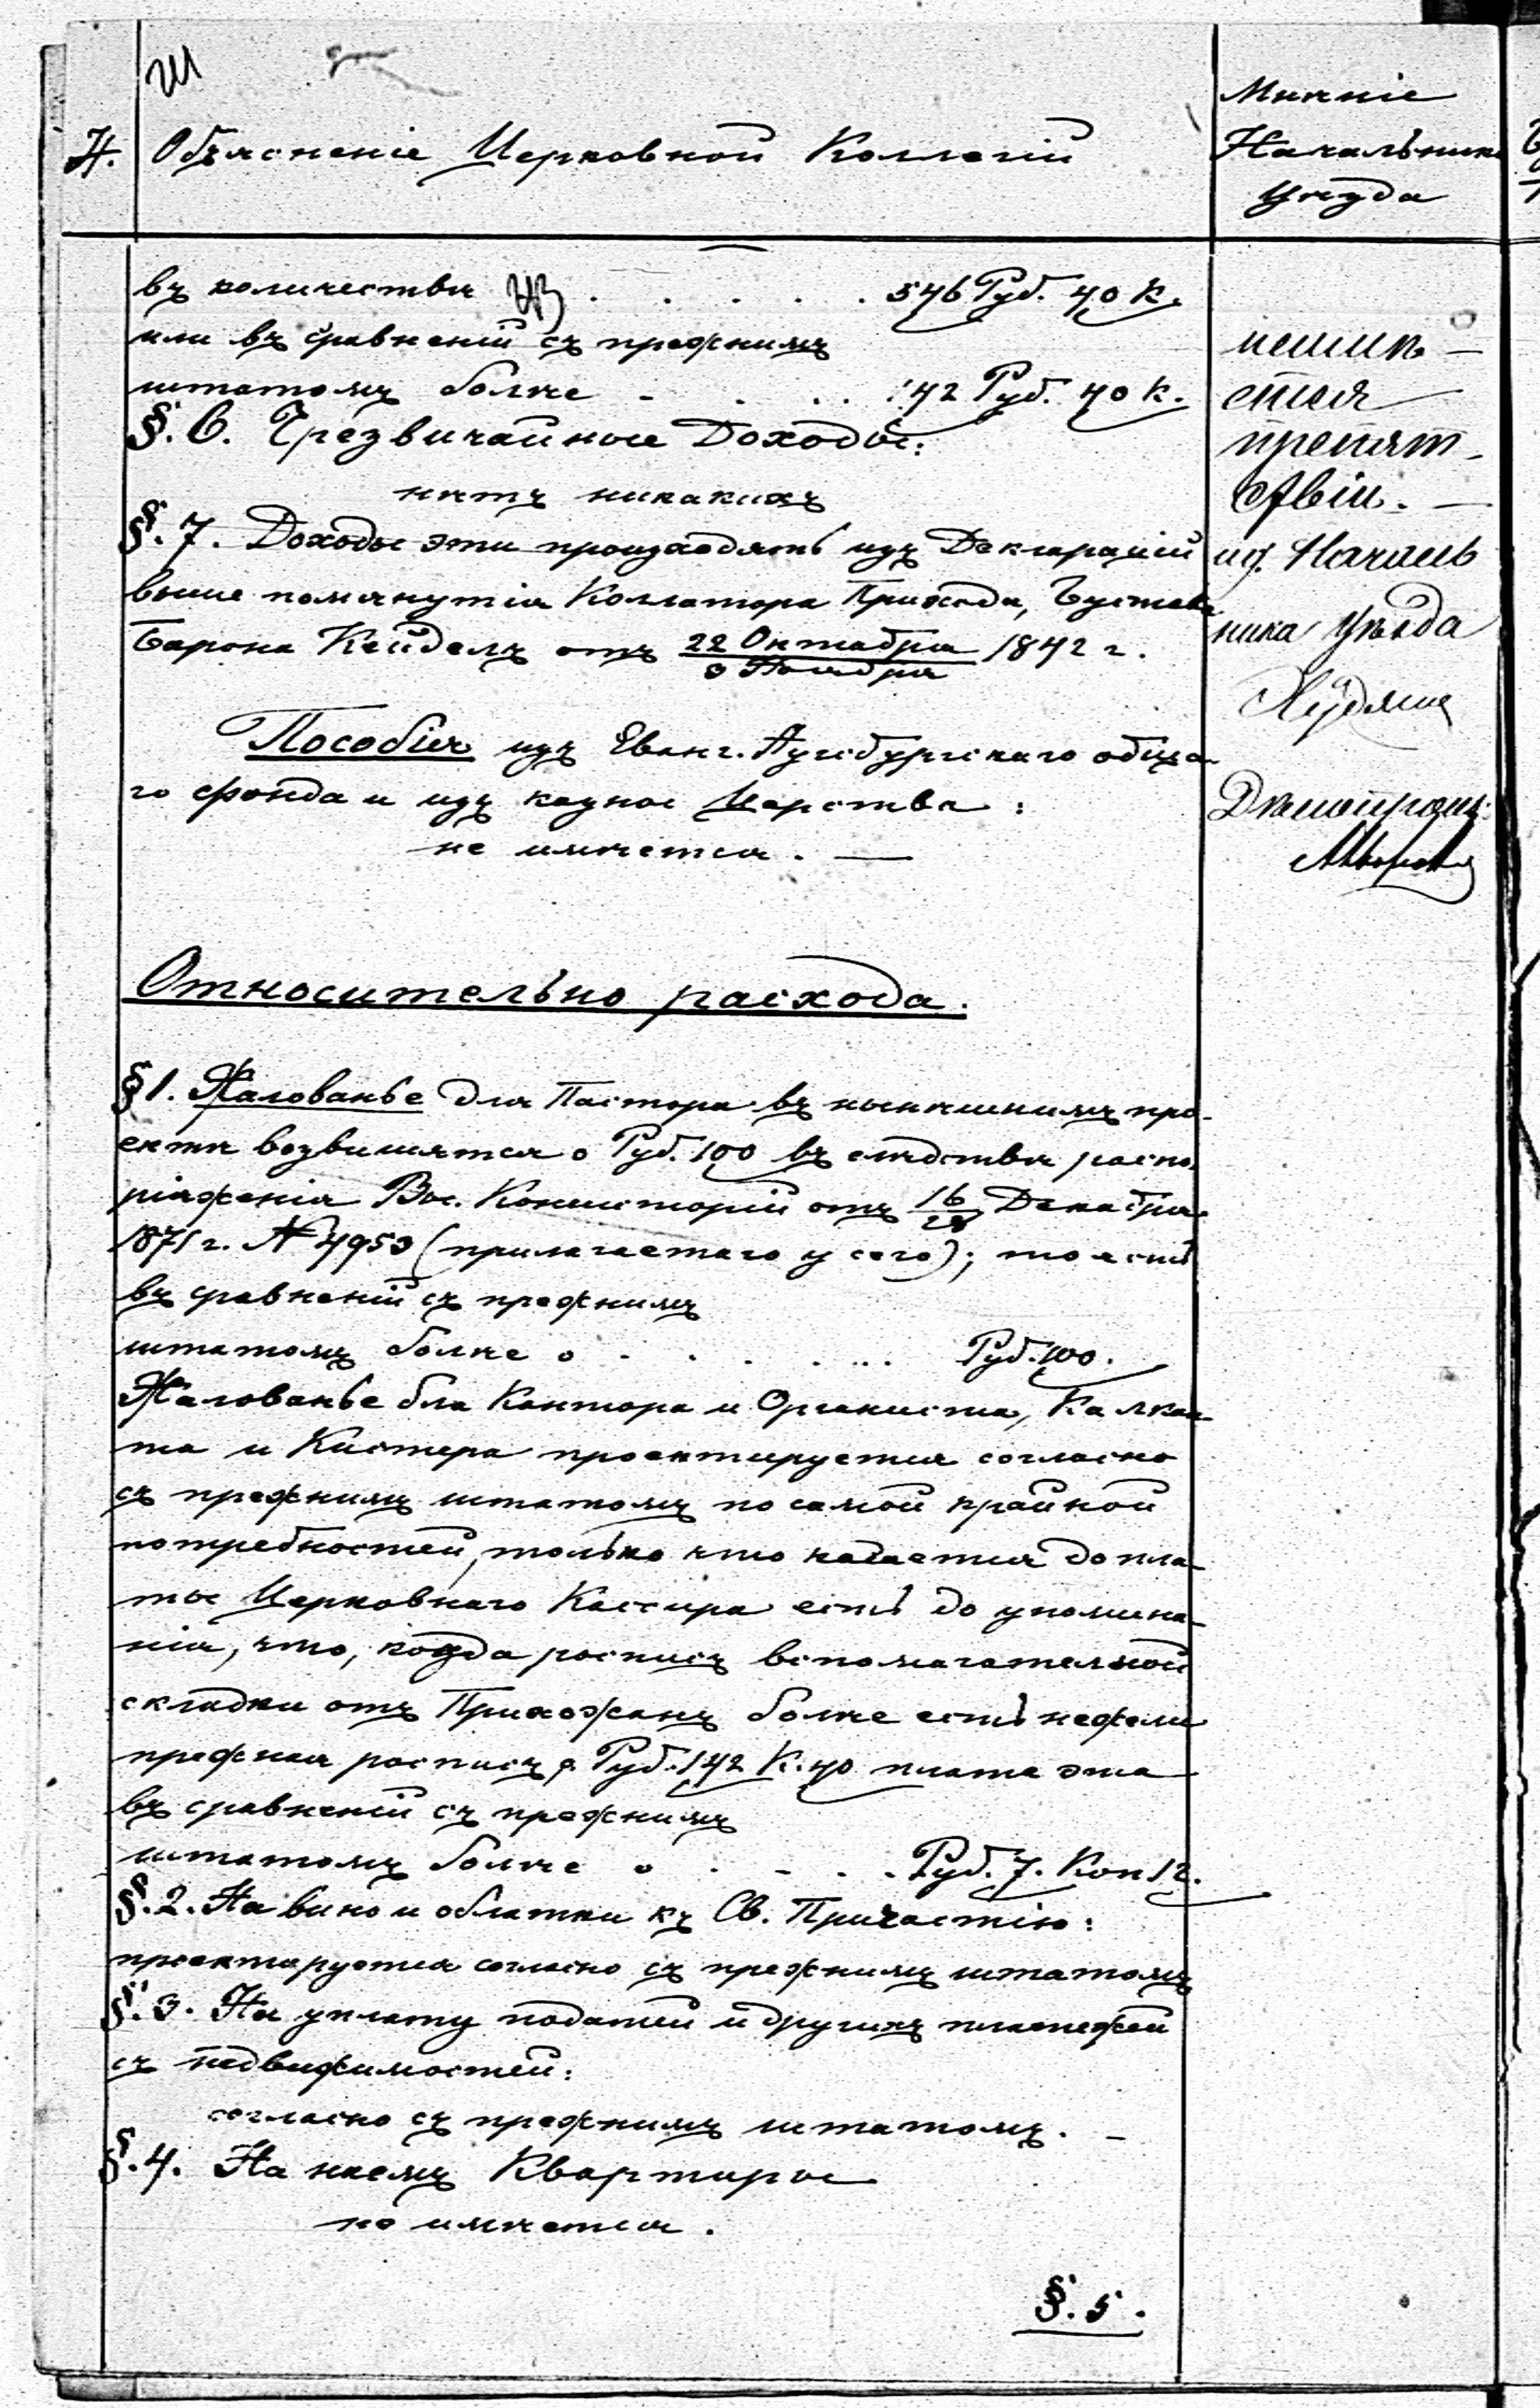 Н.
Объясненіе Церковной Коллегіи
Мнѣніе
Начальника
Уѣзда
въ количествѣ . . . . . . 546 Руб. 40 К.
или въ сравненій съ прежнимъ
штатомъ болѣе - . . . . 142 Руб. 40 К.
§. 6. Чрезвичайные Доходы:
нѣтъ никакихъ
§. 7. Доходы эти произходятъ изъ Декларацій
выше помянутія Коллатора Прихода, Густава
Барона Кейделъ отъ 22 Октабра / 3 Ноабра 1842 г.
Пособія изъ Еванг. Аугсбургскаго обща-
го фонда и изъ казны Царства:
не имѣется. —
Относительно расхода.
§ 1. Жалованье для Пастора въ нынѣшнимъ про-
ектѣ возвишятся о Руб. 100 въ слѣдствѣ распо
ріаженіа Вы. Консисторій отъ 16/28 Декабра
1871 г. № 4953 (прилагаетаго у сего); то есть
въ сравненій съ прежнимъ
штатомъ болѣе о - . . . . ... Руб. 100.
Жалованье бла Кантора и Органиста, Калкан-
та и Кистера проектируется согласно
съ прежнимъ штатомъ по самой крайной
потребностей, только что касается до пла-
ты Церковнаго Кассира есть до упомина-
ніа, что, когда росписъ вспомагателной
складки отъ Прихожанъ болѣе есть нежели
прежнаа росписъ о Руб. 142 К. 40 плата эта
въ сравненій съ прежнимъ
штатомъ болѣе о . - . . Руб. 7. Коп 12.
§. 2. На вино и облатки къ Св. Причастію:
проектируется согласно съ прежнимъ штатомъ
§. 3. На уплату податей и другихъ платежей
съ недвижимостей:
согласно съ прежнимъ штатомъ. —
§. 4. На наемъ Квартиры
не имѣется.
§. 5.
неимѣ —
ется
препят-
ствій. —
ид. Началь
ника Уѣзда